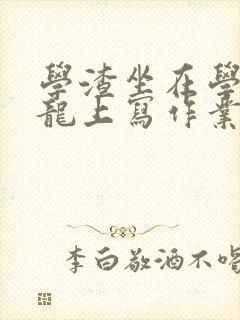 學渣坐在學
龍上寫作業
李白敬酒不喝